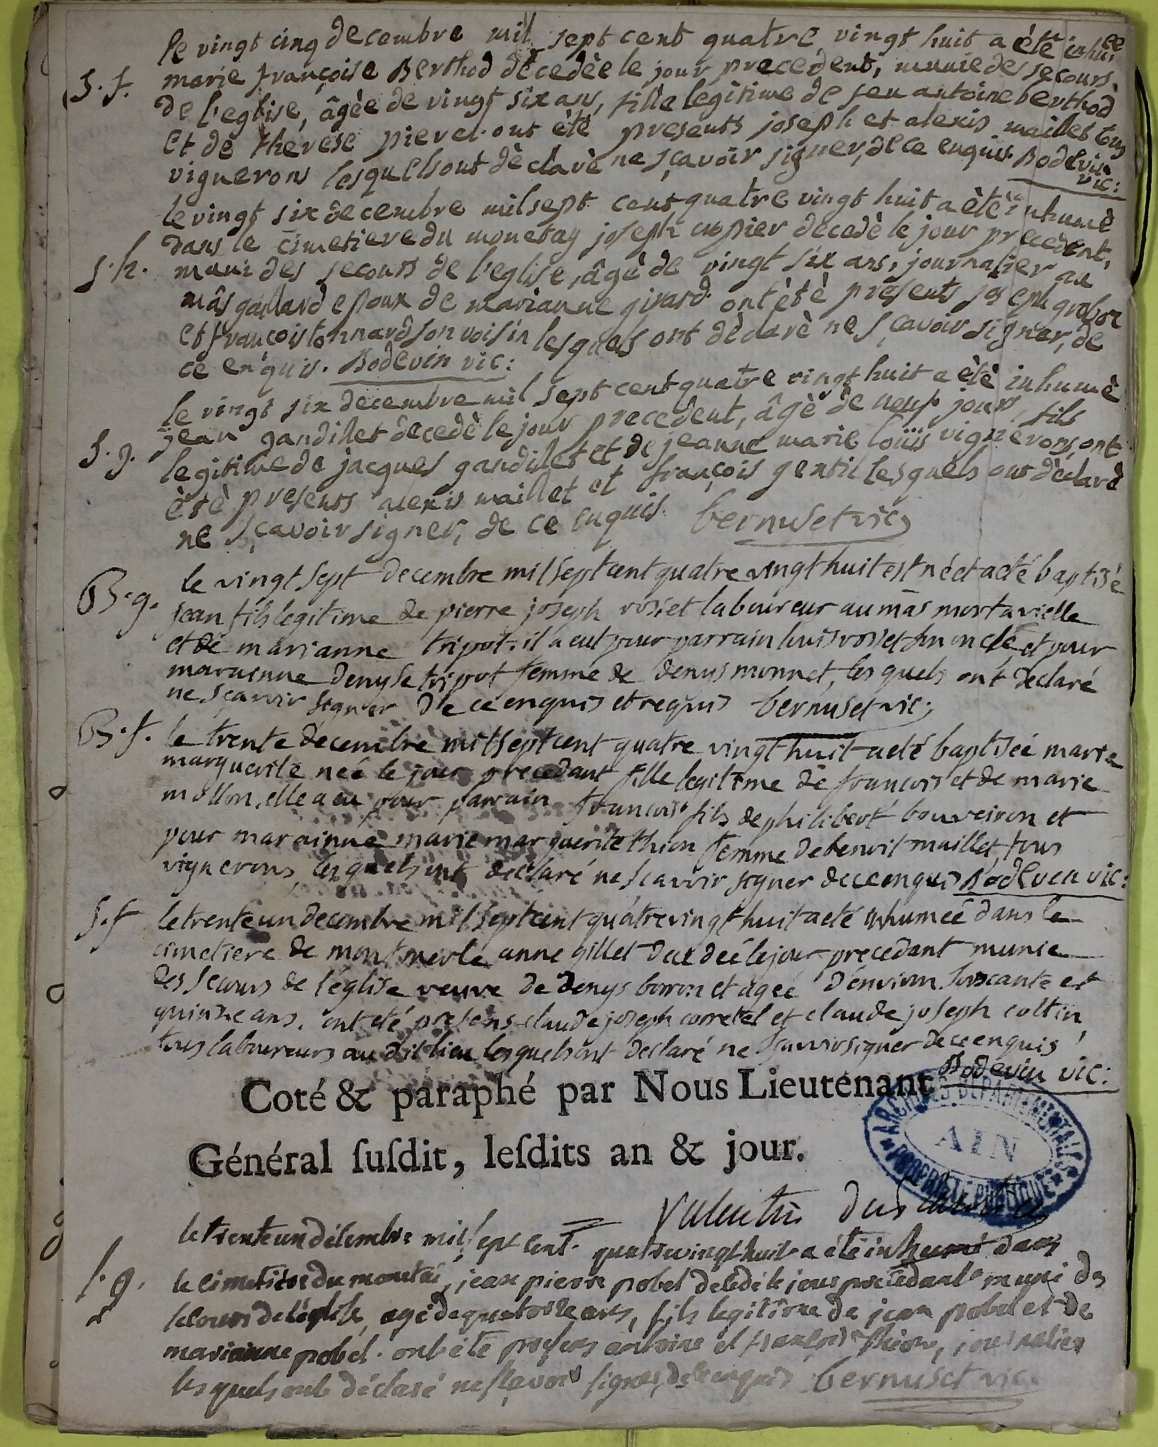 le vingt cinq decembre mil sept cent quatre vingt huit a été inhumée
S. f. marie françoise Berthod dècedèe le jour precedent, munie des secours
de l'eglise, âgèe de vingt six ans, fille legitime de feu antoine berthod
et de therese pierel. ont ètè presents joseph et alexis maillet tous
vignerons lesquels ont dèclarè ne sçavoir signer, de ce enquis Bodevin
vic:
le vingt six decembre mil sept cent quatre vingt huit a ètè inhumè
dans le cimetiere du monetay joseph cusier dècedè le jour precedent,
S. h. muni des secours de l'eglise, âgè de vingt six ans, journalier au
mâs gaillard epoux de marianne girard. ont ètè prèsents joseph grobon
et françois tonnard son voisin lesquels ont dèclarè ne sçavoir signer, de
ce enquis. Bodevin vic:
le vingt six decembre mil sept cent quatre vingt huit a ètè inhumè
jean gandillet decedè le jour precedent, âgè de neuf jours, fils
S. g. legitime de jacques gandillet et de jeanne marie loüis vignerons, ont
ètè presents alexis maillet et françois gentil lesquels ont dèclarè
ne sçavoir signer, de ce enquis. bernuset vic:
B. g. le vingt sept decembre mil sept cent quatre vingt huit est né et a eté baptisé
jean fils legitime de pierre joseph rosset laboureur au mâs mortarielle
et de marianne tripot. il a eut pour parrain louis rosset son oncle, et pour
maraenne denyse tripot femme de denys monnet, les quels ont declaré
ne scavoir signer de ce enquis et requis bernuset vic:
B. f. le trente decembre mil sept cent quatre vingt huit a eté baptiseé marie
marguerite neé le jour precedant fille legitime de francois et de marie
millon. elle a eu pour parrain francois fils de philibert bouveiron et
pour marainne marie marguerite thion femme de benoit maillet, tous
vignerons, les quels ont declaré ne scavoir signer de ce enquis Bodevin vic:
S. f le trente un decembre mil sept cent quatre vingt huit a eté inhumeé dans le
cimetiere de montmerle anne gillet decedeé le jour precedant munie
des secours de l'église veuve de denys borron et ageé d'environ soixante et
quinze ans. ont eté presens claude joseph corretel et claude joseph cottin,
tous laboureurs au dit lieu lesquels ont declaré ne scavoir signer de ce enquis
Bodevin vic:
Coté & paraphé par Nous Lieutenant
Général ſuſdit, leſdits an & jour.
ARCHIVES DEPARTEMENTALES
AIN
PROPRIETE PUBLIQUE
Valentin
le trente un décembre mil sept cent quatre vingt huit a été inhumé dans
S. g. le cimetiere du monetai, jean pierre pobel décédé le jour precedant muni des
secours de l'église, agé de quatorse ans, fils legitime de jean pobel et de
marianne pobel. ont été presens antoine et françois thion, journalier
les quels ont déclaré ne sçavoir signer, de ce enquis bernuset vic: